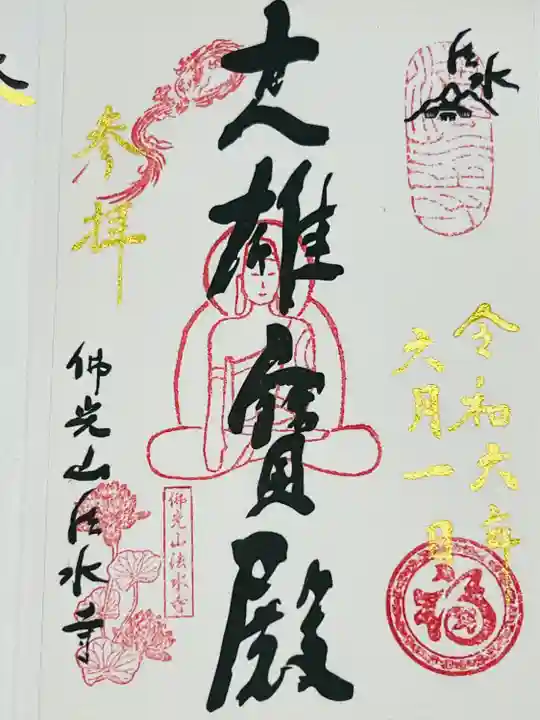 法水
令和六年
六月一日
福
大雄寳殿
参拝
佛光山法水寺
佛光山法水寺